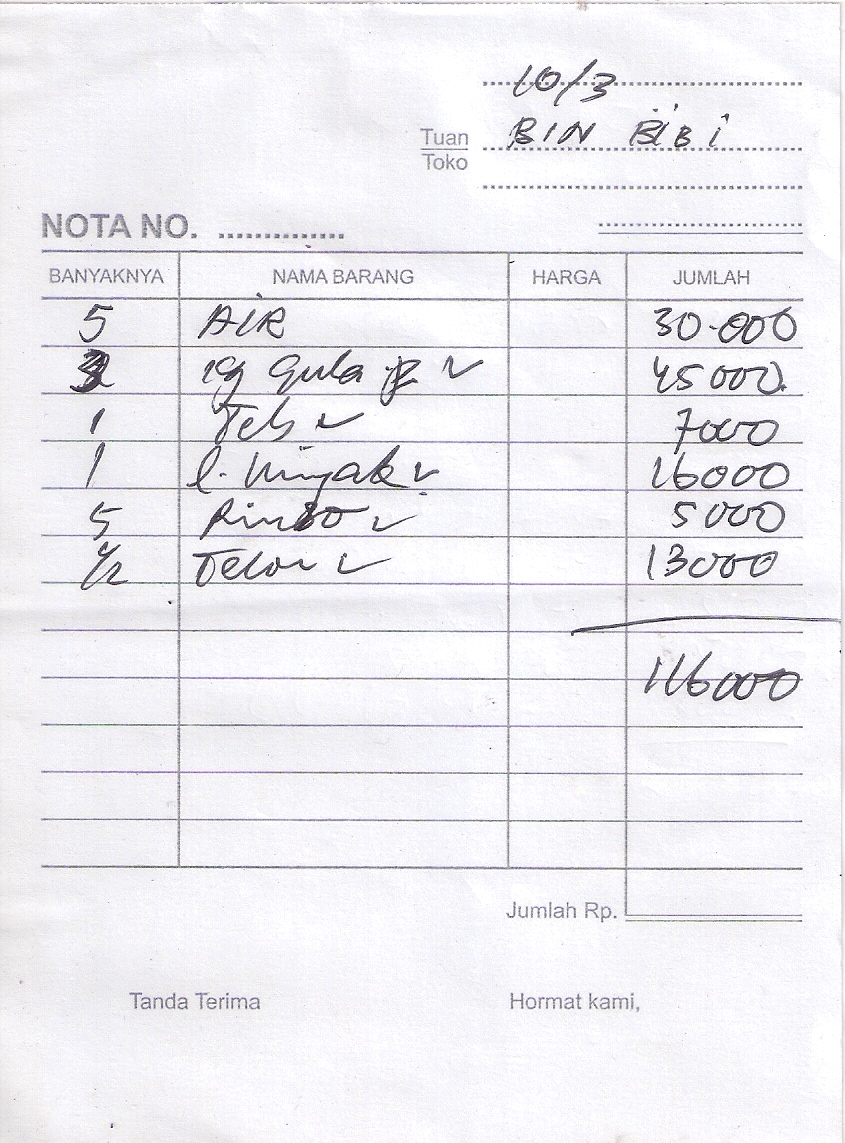 10/3
Tuan BIN BIBI
Toko
NOTA NO. ..............
BANYAKNYA NAMA BARANG HARGA JUMLAH
5 AIR 30.000
3 kg gula 45000
1 7000
1 l. minyak 16000
5 Rinso 5000
1/2 Telor 13000
116000
Jumlah Rp.
Tanda Terima Hormat kami,